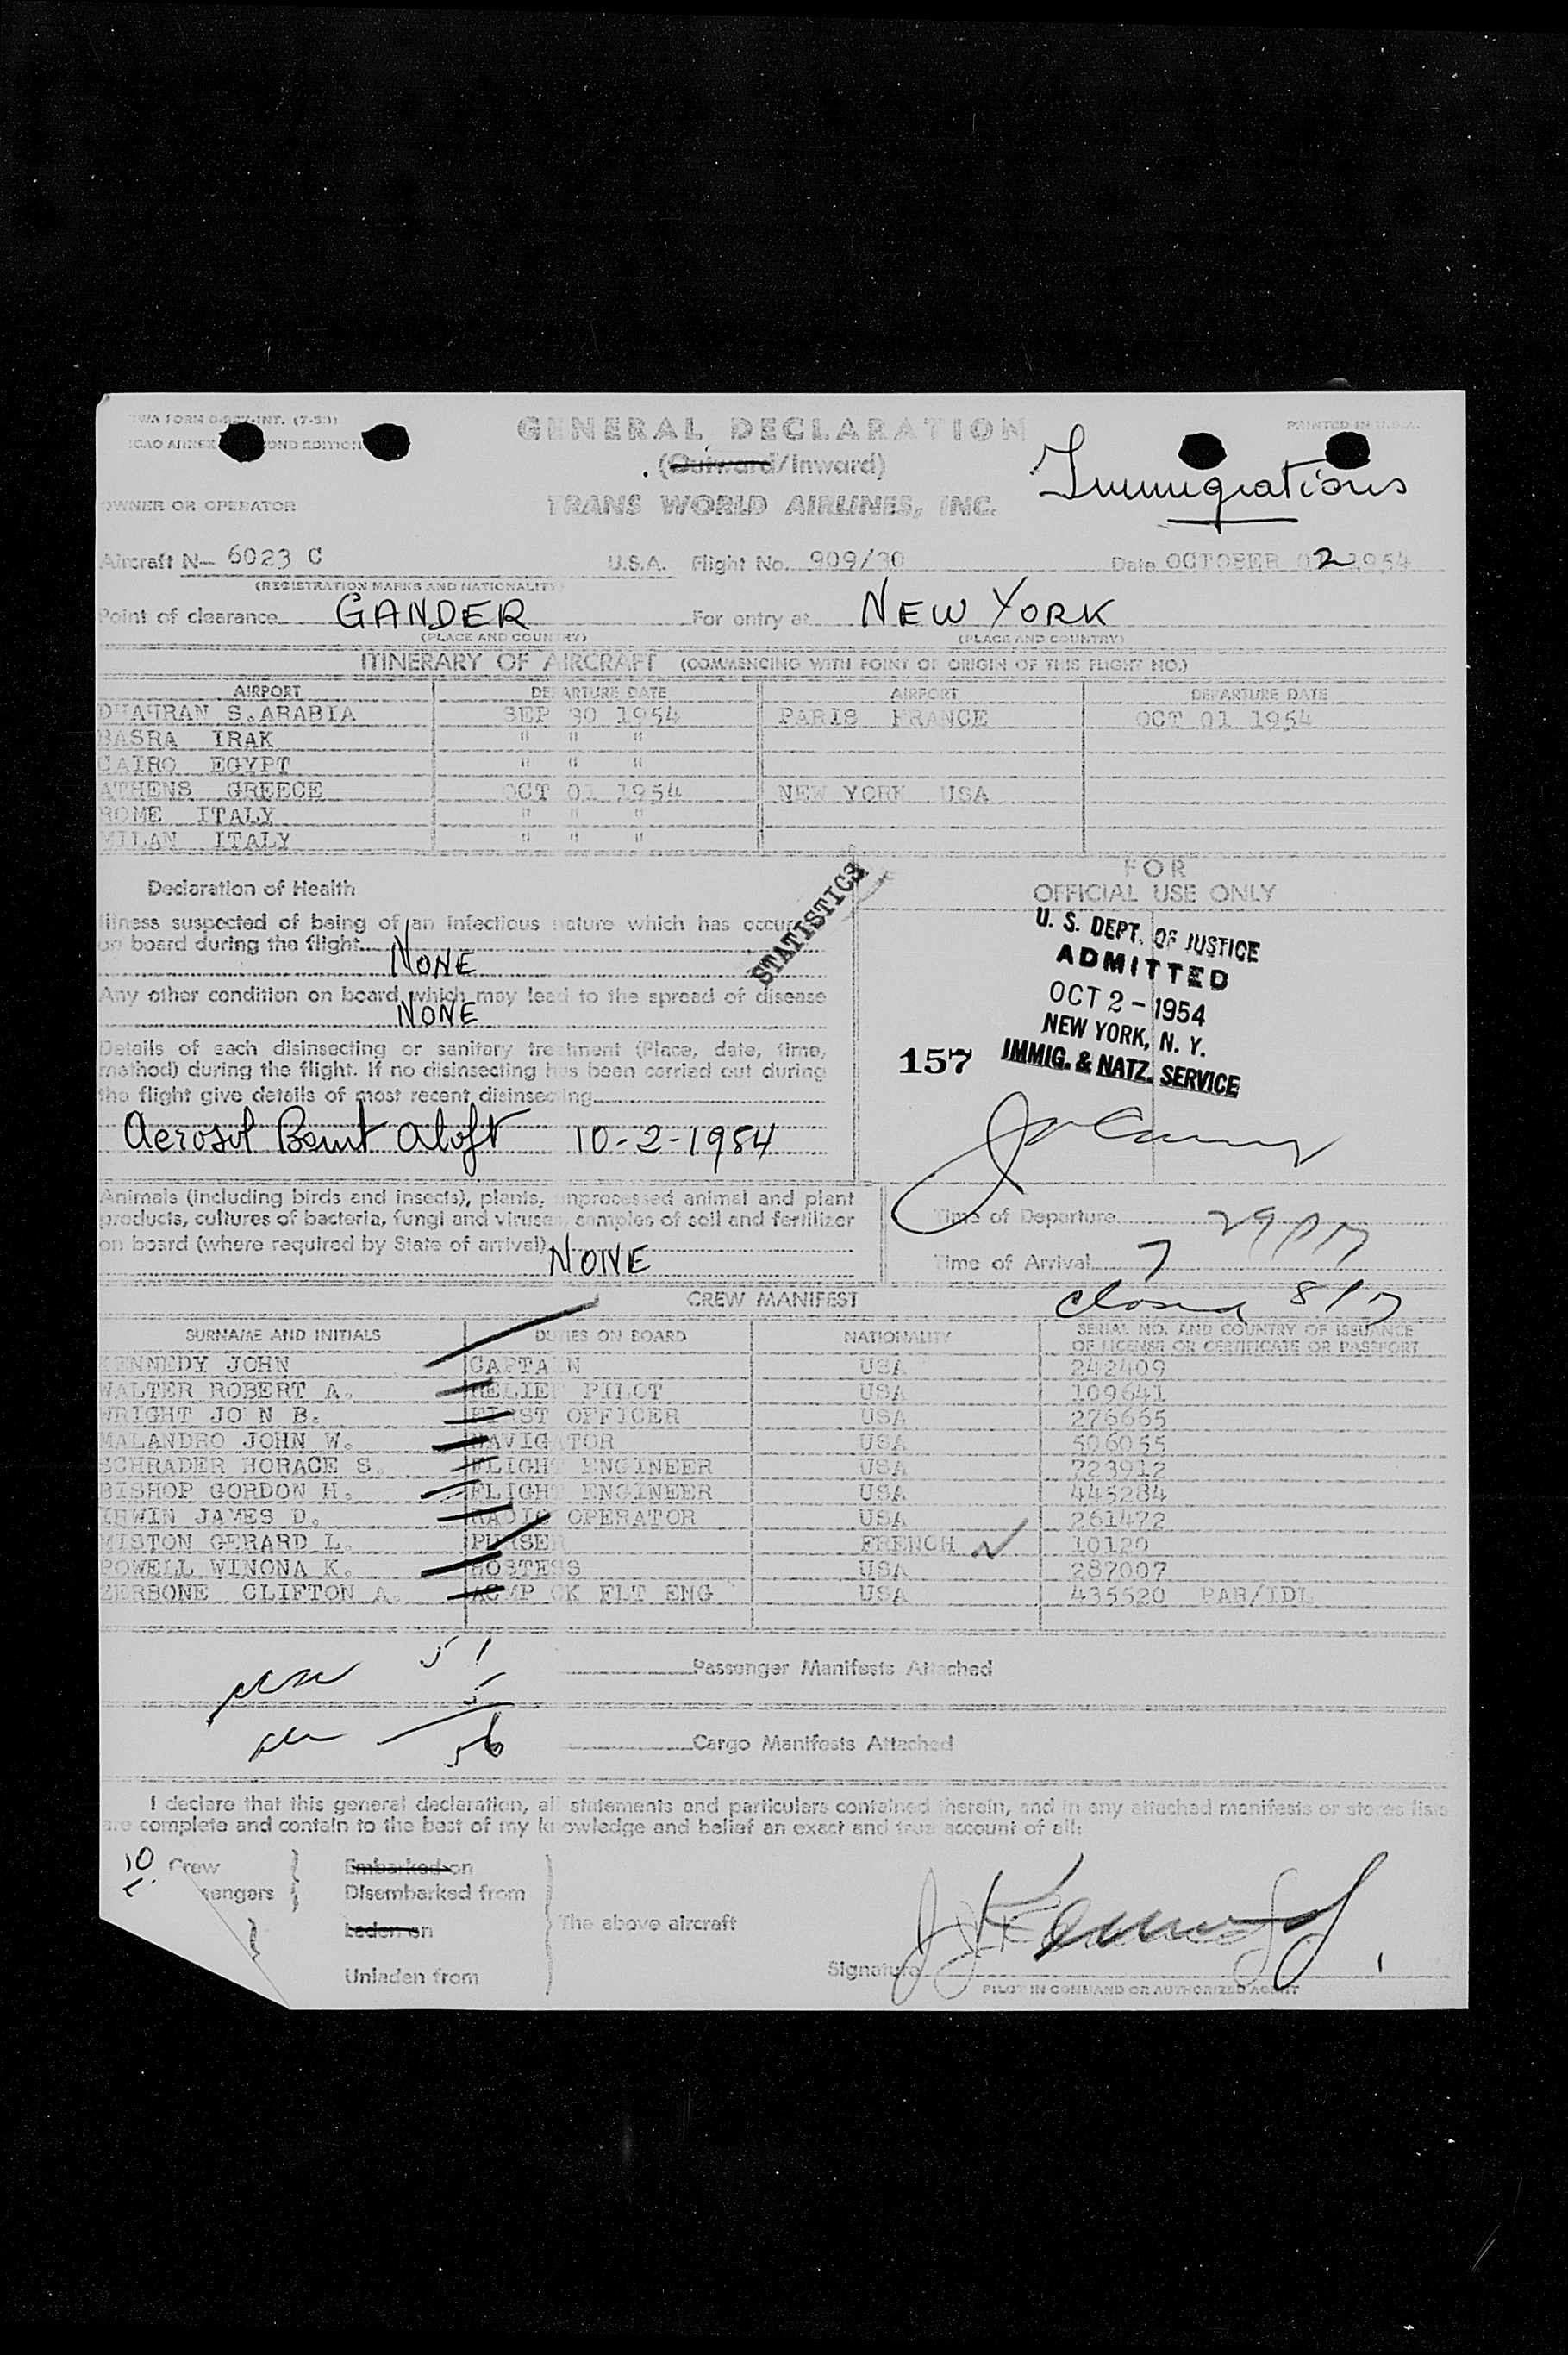 TWA FORM
ICAO ANNEX SECOND EDITION
GENERAL DECLARATION
PRINTED IN U.S.A.
(Outward/Inward)
Immigrations
OWNER OR OPERATOR
TRANS WORLD AIRLINES, INC.
Aircraft N- 6023 C U.S.A. Flight No. 909/30 Date OCTOBER 02 1954
(REGISTRATION MARKS AND NATIONALITY)
Point of clearance GANDER For entry at NEW YORK
(PLACE AND COUNTRY) (PLACE AND COUNTRY)
ITINERARY OF AIRCRAFT (COMMENCING WITH POINT OF ORIGIN OF THIS FLIGHT NO.)
AIRPORT DEPARTURE DATE AIRPORT DEPARTURE DATE
DHAHRAN S.ARABIA SEP 30 1954 PARIS FRANCE OCT 01 1954
BASRA IRAK " " "
CAIRO EGYPT " " "
ATHENS GREECE OCT 01 1954 NEW YORK USA
ROME ITALY " " "
MILAN ITALY " " "
FOR
OFFICIAL USE ONLY
Declaration of Health
STATISTICS
Illness suspected of being of an infectious nature which has occurred
on board during the flight
NONE
Any other condition on board which may lead to the spread of disease
NONE
Details of each disinsecting or sanitary treatment (Place, date, time,
method) during the flight. If no disinsecting has been carried out during
the flight give details of most recent disinsecting
Aerosol Bomb Aloft 10-2-1954
U. S. DEPT. OF JUSTICE
ADMITTED
OCT 2 - 1954
NEW YORK, N. Y.
IMMIG. & NATZ. SERVICE
157
Animals (including birds and insects), plants, unprocessed animal and plant
products, cultures of bacteria, fungi and viruses, samples of soil and fertilizer
on board (where required by State of arrival)
NONE
Time of Departure
Time of Arrival 7 29 PM
closed
CREW MANIFEST
SURNAME AND INITIALS DUTIES ON BOARD NATIONALITY SERIAL NO. AND COUNTRY OF ISSUANCE
OF LICENSE OR CERTIFICATE OR PASSPORT
KENNEDY JOHN CAPTAIN USA 242409
WALTER ROBERT A. RELIEF PILOT USA 109641
WRIGHT JOHN B. FIRST OFFICER USA 276665
MALANDRO JOHN W. NAVIGATOR USA 506055
SCHRADER HORACE S. FLIGHT ENGINEER USA 723912
BISHOP GORDON H. FLIGHT ENGINEER USA 445284
IRWIN JAMES D. RADIO OPERATOR USA 261472
MISTON GERARD L. PURSER FRENCH 10120
POWELL WINONA K. HOSTESS USA 287007
ZERBONE CLIFTON A. ACMP CK FLT ENG USA 435520 PAR/IDL
51
5
56
Passenger Manifests Attached
Cargo Manifests Attached
I declare that this general declaration, all statements and particulars contained therein, and in any attached manifests or stores lists
are complete and contain to the best of my knowledge and belief an exact and true account of all:
10 Crew Embarked on
Passengers Disembarked from
Laden on The above aircraft
Unladen from
Signature J Kennedy
PILOT IN COMMAND OR AUTHORIZED AGENT